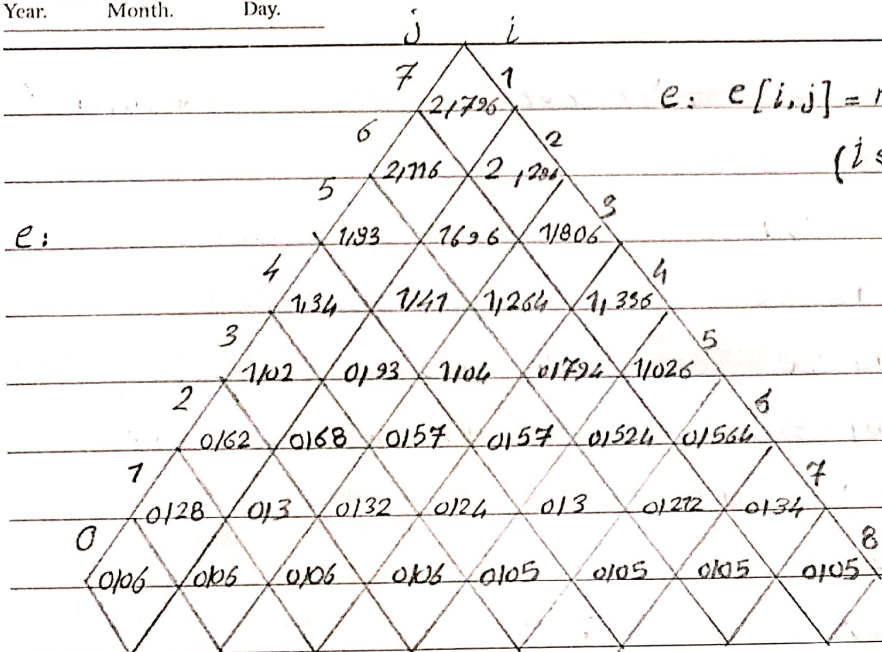 Year. Month. Day.
j i
7 1
2,796 e: e[i,j] =
6 2
2,116
5 3
e: 1/93 1696 1/806
4 4
1,34 1/41 1,264 1,336
3 5
1/02 0/93 1/04 0/794 1/026
2 6
0/62 0/68 0/57 0/57 0/524 0/564
1 7
0/28 0/3 0/32 0/24 0/3 0/272 0/34
0 8
0/06 0/06 0/06 0/06 0/05 0/05 0/05 0/05